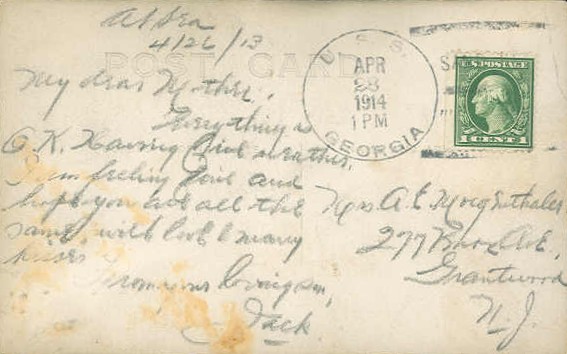 At Sea
4/26/13
POST CARD
My dear Mother,
Everything is
O.K. Having fine weather.
I am feeling fine and
hope you are all the
same, with love & many
kisses
From your loving son,
Jack.
U.S.S.
APR
28
1914
1 PM
GEORGIA
U.S. POSTAGE
1 CENT 1
Mrs A. E. Morgenthaler
277 Ave.
Grantwood
N.J.